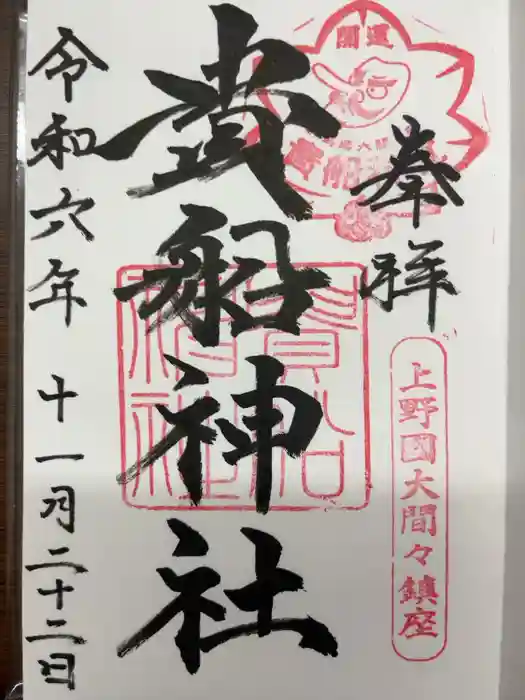 奉拝
開運
上野國大間々鎮座
貴船神社
令和六年 十一月二十二日